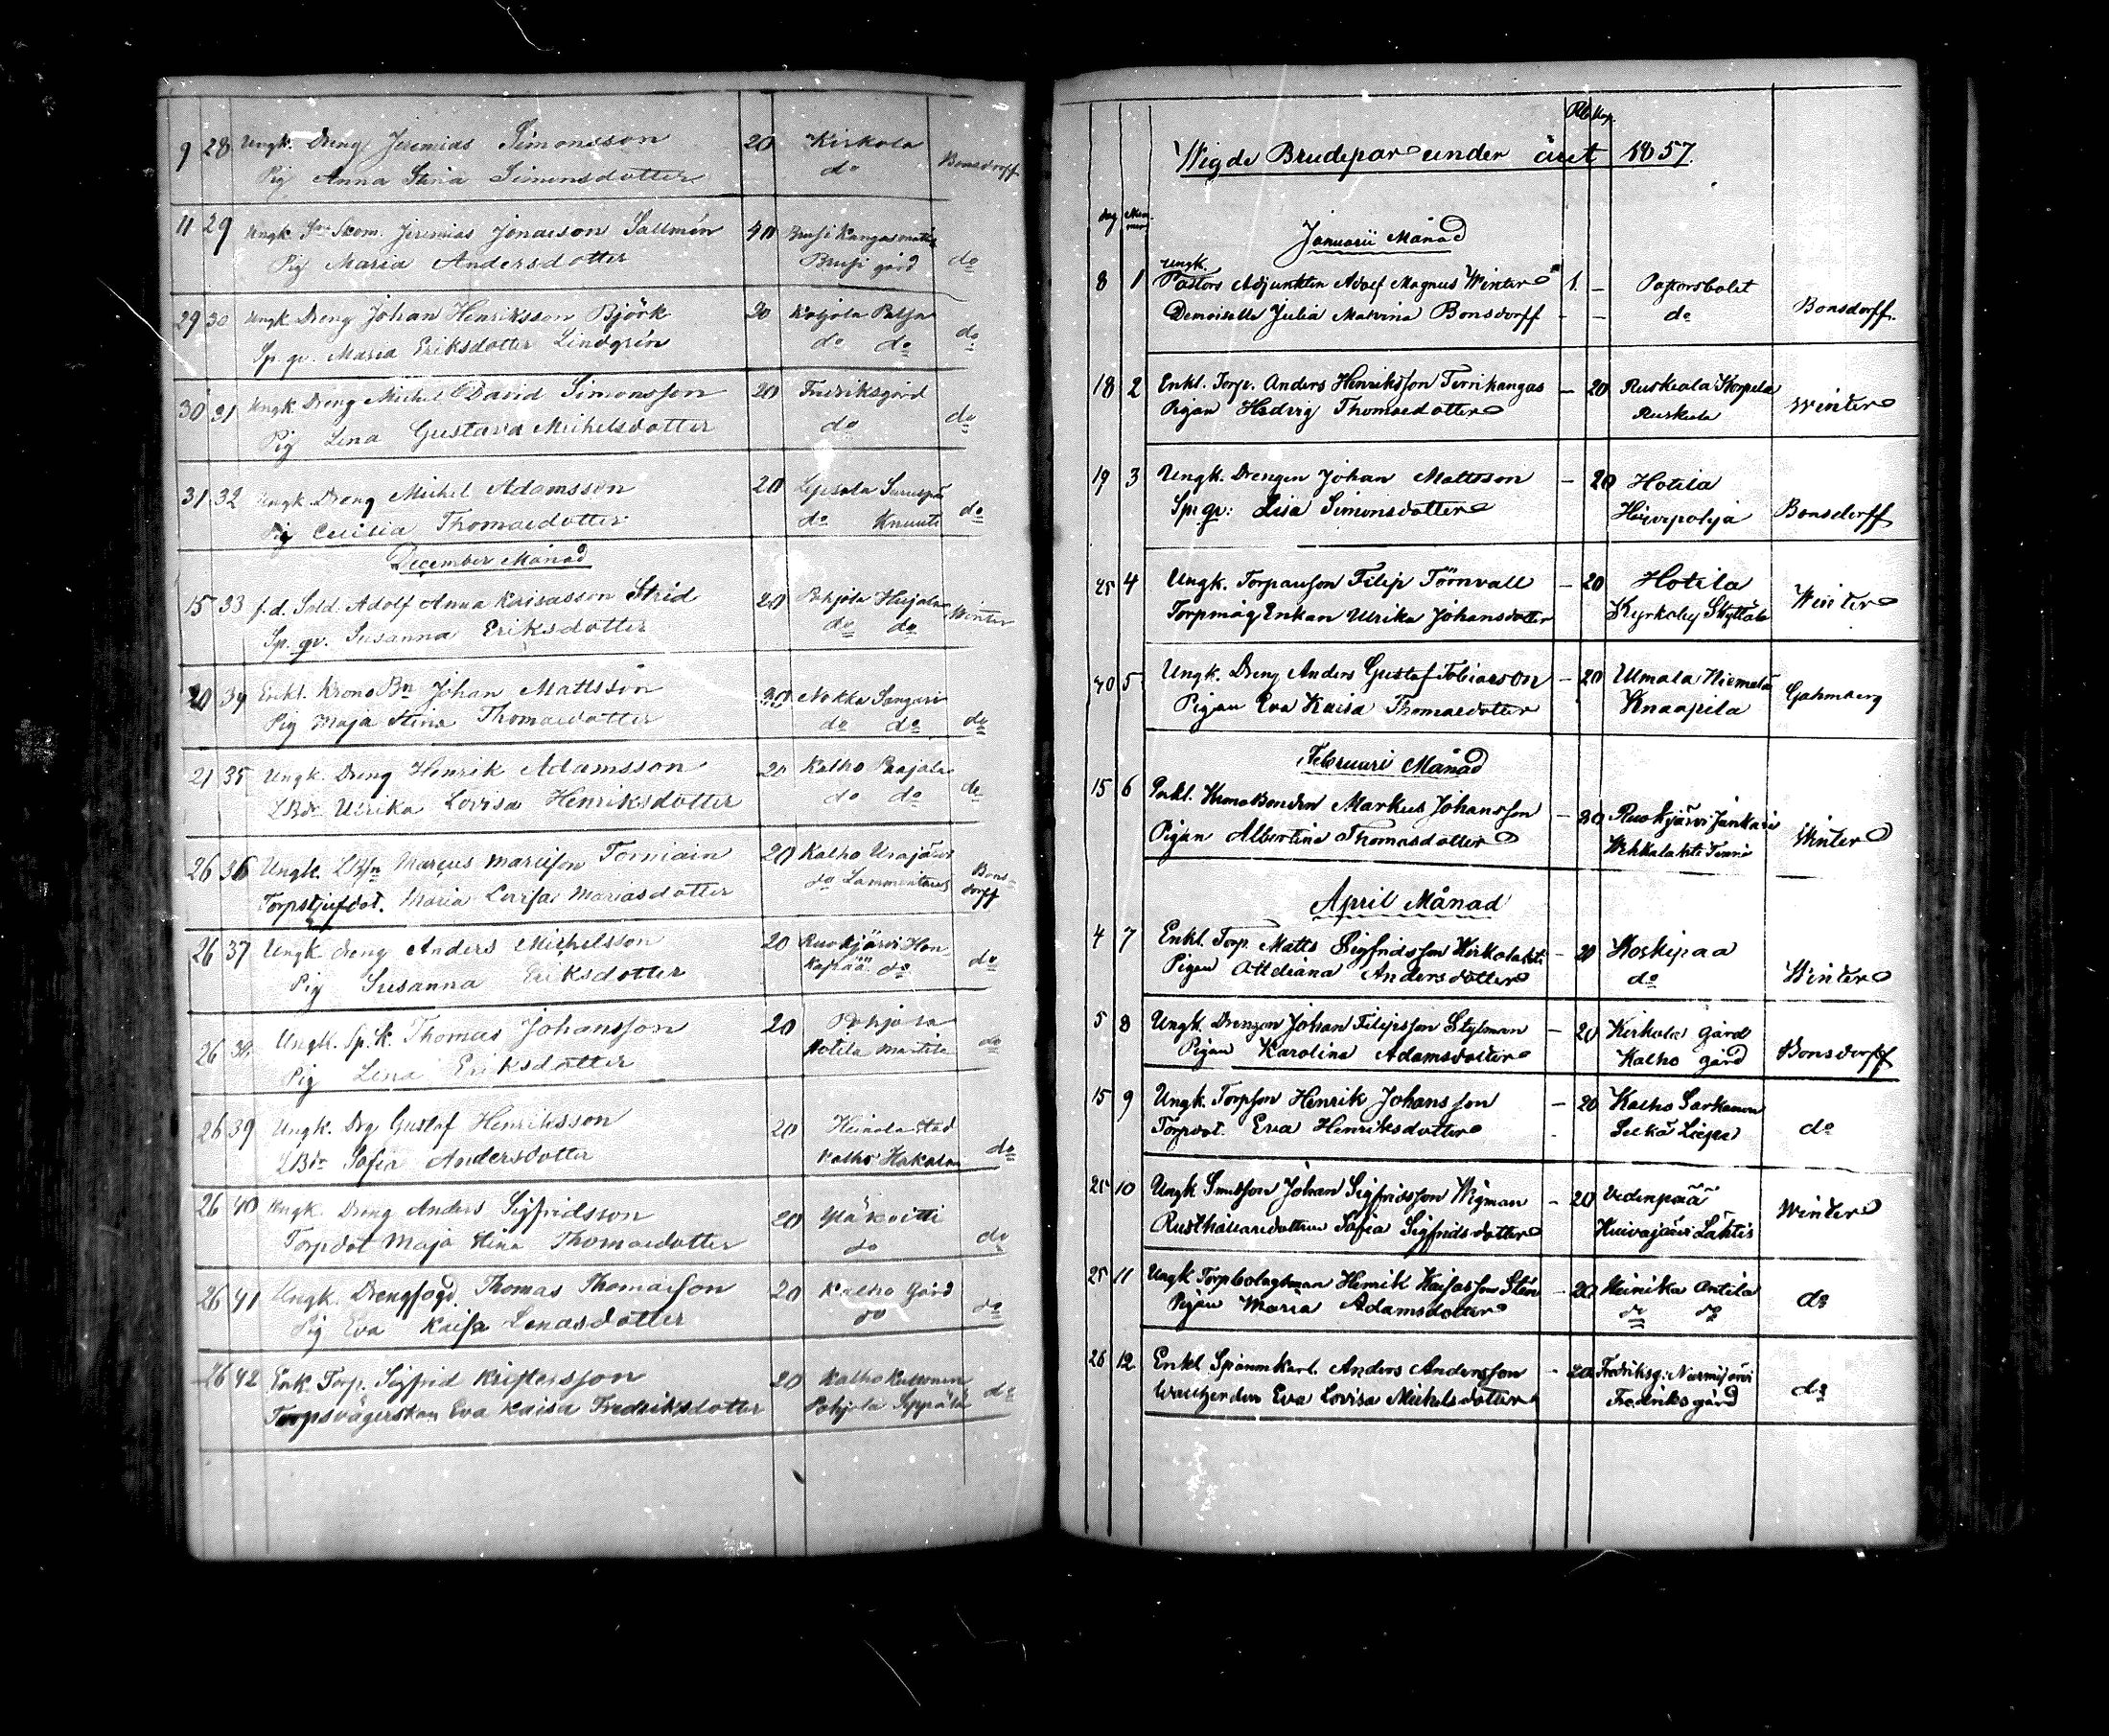 9 28 Ungk. Dreng Jeremias Simonsson 20 Kirkola Bonsdorff
Pig Anna Stina Simonsdotter do
11 29 Ungk. Skom. Jeremias Jonasson Sallmén 40 Bruse Kangasmäki
Pig Maria Andersdotter Bruse gård do
29 30 Ungk Dreng Johan Henriksson Björk 20 Pohjola
Sp. qv. Maria Eriksdotter Lindgrén do do do
30 31 Ungk Dreng Michel David Simonsson 20 Fredriksgård
Pig Lena Gustava Michelsdotter do do
31 32 Ungk Dreng Michel Adamsson 20 Lepsala
Pig Cecilia Thomaedotter do Knuuti do
December Månad
15 33 f.d. Sold. Adolf Anna Kaisasson Strid 20 Pohjola Winter
Sp. qv. Susanna Eriksdotter do do
20 34 Enkl. Krono Bn Johan Mattsson 20 Nokka Sangari
Pig Maja Stina Thomaedotter do do do
21 35 Ungk. Dreng Henrik Adamsson 20 Kalho Paajala
LBdr Ulrika Lovisa Henriksdotter do do do
26 36 Ungk. LBsn Marcus Marcisson Torniain 20 Kalho Urajärvi Bons-
Torpstjufdot. Maria Lovisa Mariasdotter do dorff
26 37 Ungk dreng Anders Michelsson 20 Ruokjärvi Hon-
Pig Susanna Eriksdotter kapää do do
26 38 Ungk. Sp. K. Thomas Johansson 20 Pohjola
Pig Lena Eriksdotter Hotila Mantila do
26 39 Ungk. Drg Gustaf Henriksson 20 Heinola Stad
LBdr Sofia Andersdotter Kalho Hakala do
26 40 Ungk. Dreng Anders Sigfridsson 20 Yläkoitti
Torpdot Maja Stina Thomaedotter do do
26 41 Ungk. Drengfogd. Thomas Thomaeson 20 Kalho Gård
Pig Eva Kaisa Lenasdotter do do
26 42 Enk Torp. Sigfrid Kristersson 20 Kalho
Torpsvägerskan Eva Kaisa Fredriksdotter Pohjola Seppälä do
Rb Kop.
Wigde Brudepar under året 1857.
dag Num-mer
Januarii Månad
Ungk.
8 1 Pastors Adjunkten Adolf Magnus Winter 1. – Pastorsbolet
Demoiselle Julia Malvina Bonsdorff – – do Bonsdorff
18 2 Enkl. Torp. Anders Henriksson Terrikangas – 20 Ruskeala Skorpela
Pigan Hedvig Thomaedotter Ruskeala Winter
19 3 Ungk. Drengen Johan Mattsson – 20 Hotila
Sp: qv: Lisa Simonsdotter Hirvepohja Bonsdorff
25 4 Ungk. Torpareson Filip Törnvall – 20 Hotila
Torpmåg Enkan Ulrika Johansdotter Kyrkoby Skyttälä Winter
30 5 Ungk. Dreng Anders Gustaf Tobiasson – 20 Urmala Niemelä
Pigan Eva Kaisa Thomaedotter Knaapila Gahmberg
Februari Månad
15 6 Enkl. Kronobonden Markus Johansson – 20 Ruokjärvi Jankari
Pigan Albertina Thomasdotter Wehkalahti Winter
April Månad
4 7 Enkl. Torp. Matts Sigfridsson Kirkolahti – 20 Koskipaa
Pigan Attdiana Andersdotter do Winter
5 8 Ungk. Drengen Johan Filipsson Stylman – 20 Kirkola Gård
Pigan Karolina Adamsdotter Kalho Gård Bonsdorff
15 9 Ungk. Torpson Henrik Johansson – 20 Kalho
Torpdot. Eva Henriksdotter do
25 10 Ungk Smedson Johan Sigfridsson Wigman – 20 Vedenpää
Rusthållaredottren Sofia Sigfridsdotter Huivajärvi Lahtis Winter
25 11 Ungk Torpbolagsman Henrik Kaisasson Sten – 20 Heinika Antila
Pigan Maria Adamsdotter do do do
26 12 Enkl. Spannmkarl. Anders Andersson – 20 Fredriksg: Nurmijärvi
Eva Lovisa Michelsdotter Fredriksgård do